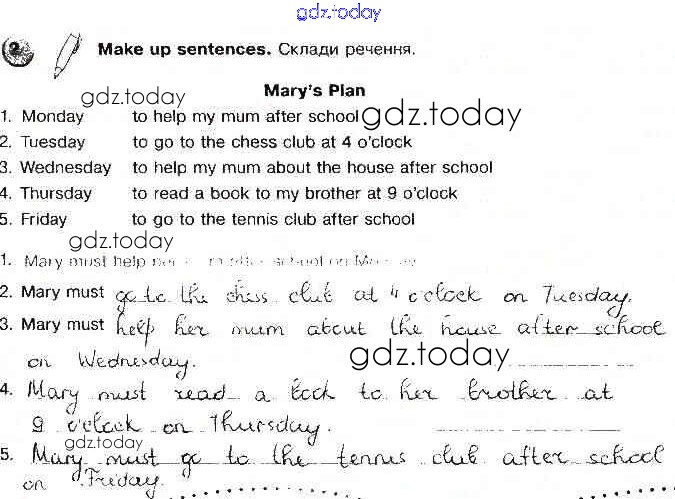 gdz.today
2 Make up sentences. Склади речення.
Mary's Plan
gdz.today
1. Monday to help my mum after school gdz.today
2. Tuesday to go to the chess club at 4 o'clock
3. Wednesday to help my mum about the house after school
4. Thursday to read a book to my brother at 9 o'clock
5. Friday to go to the tennis club after school
gdz.today
1. Mary must help her mum after school on Monday
2. Mary must go to the chess club at 4 o'clock on Tuesday.
3. Mary must help her mum about the house after school
on Wednesday. gdz.today
4. Mary must read a book to her brother at
9 o'clock on Thursday.
gdz.today
5. Mary must go to the tennis club after school
on Friday.